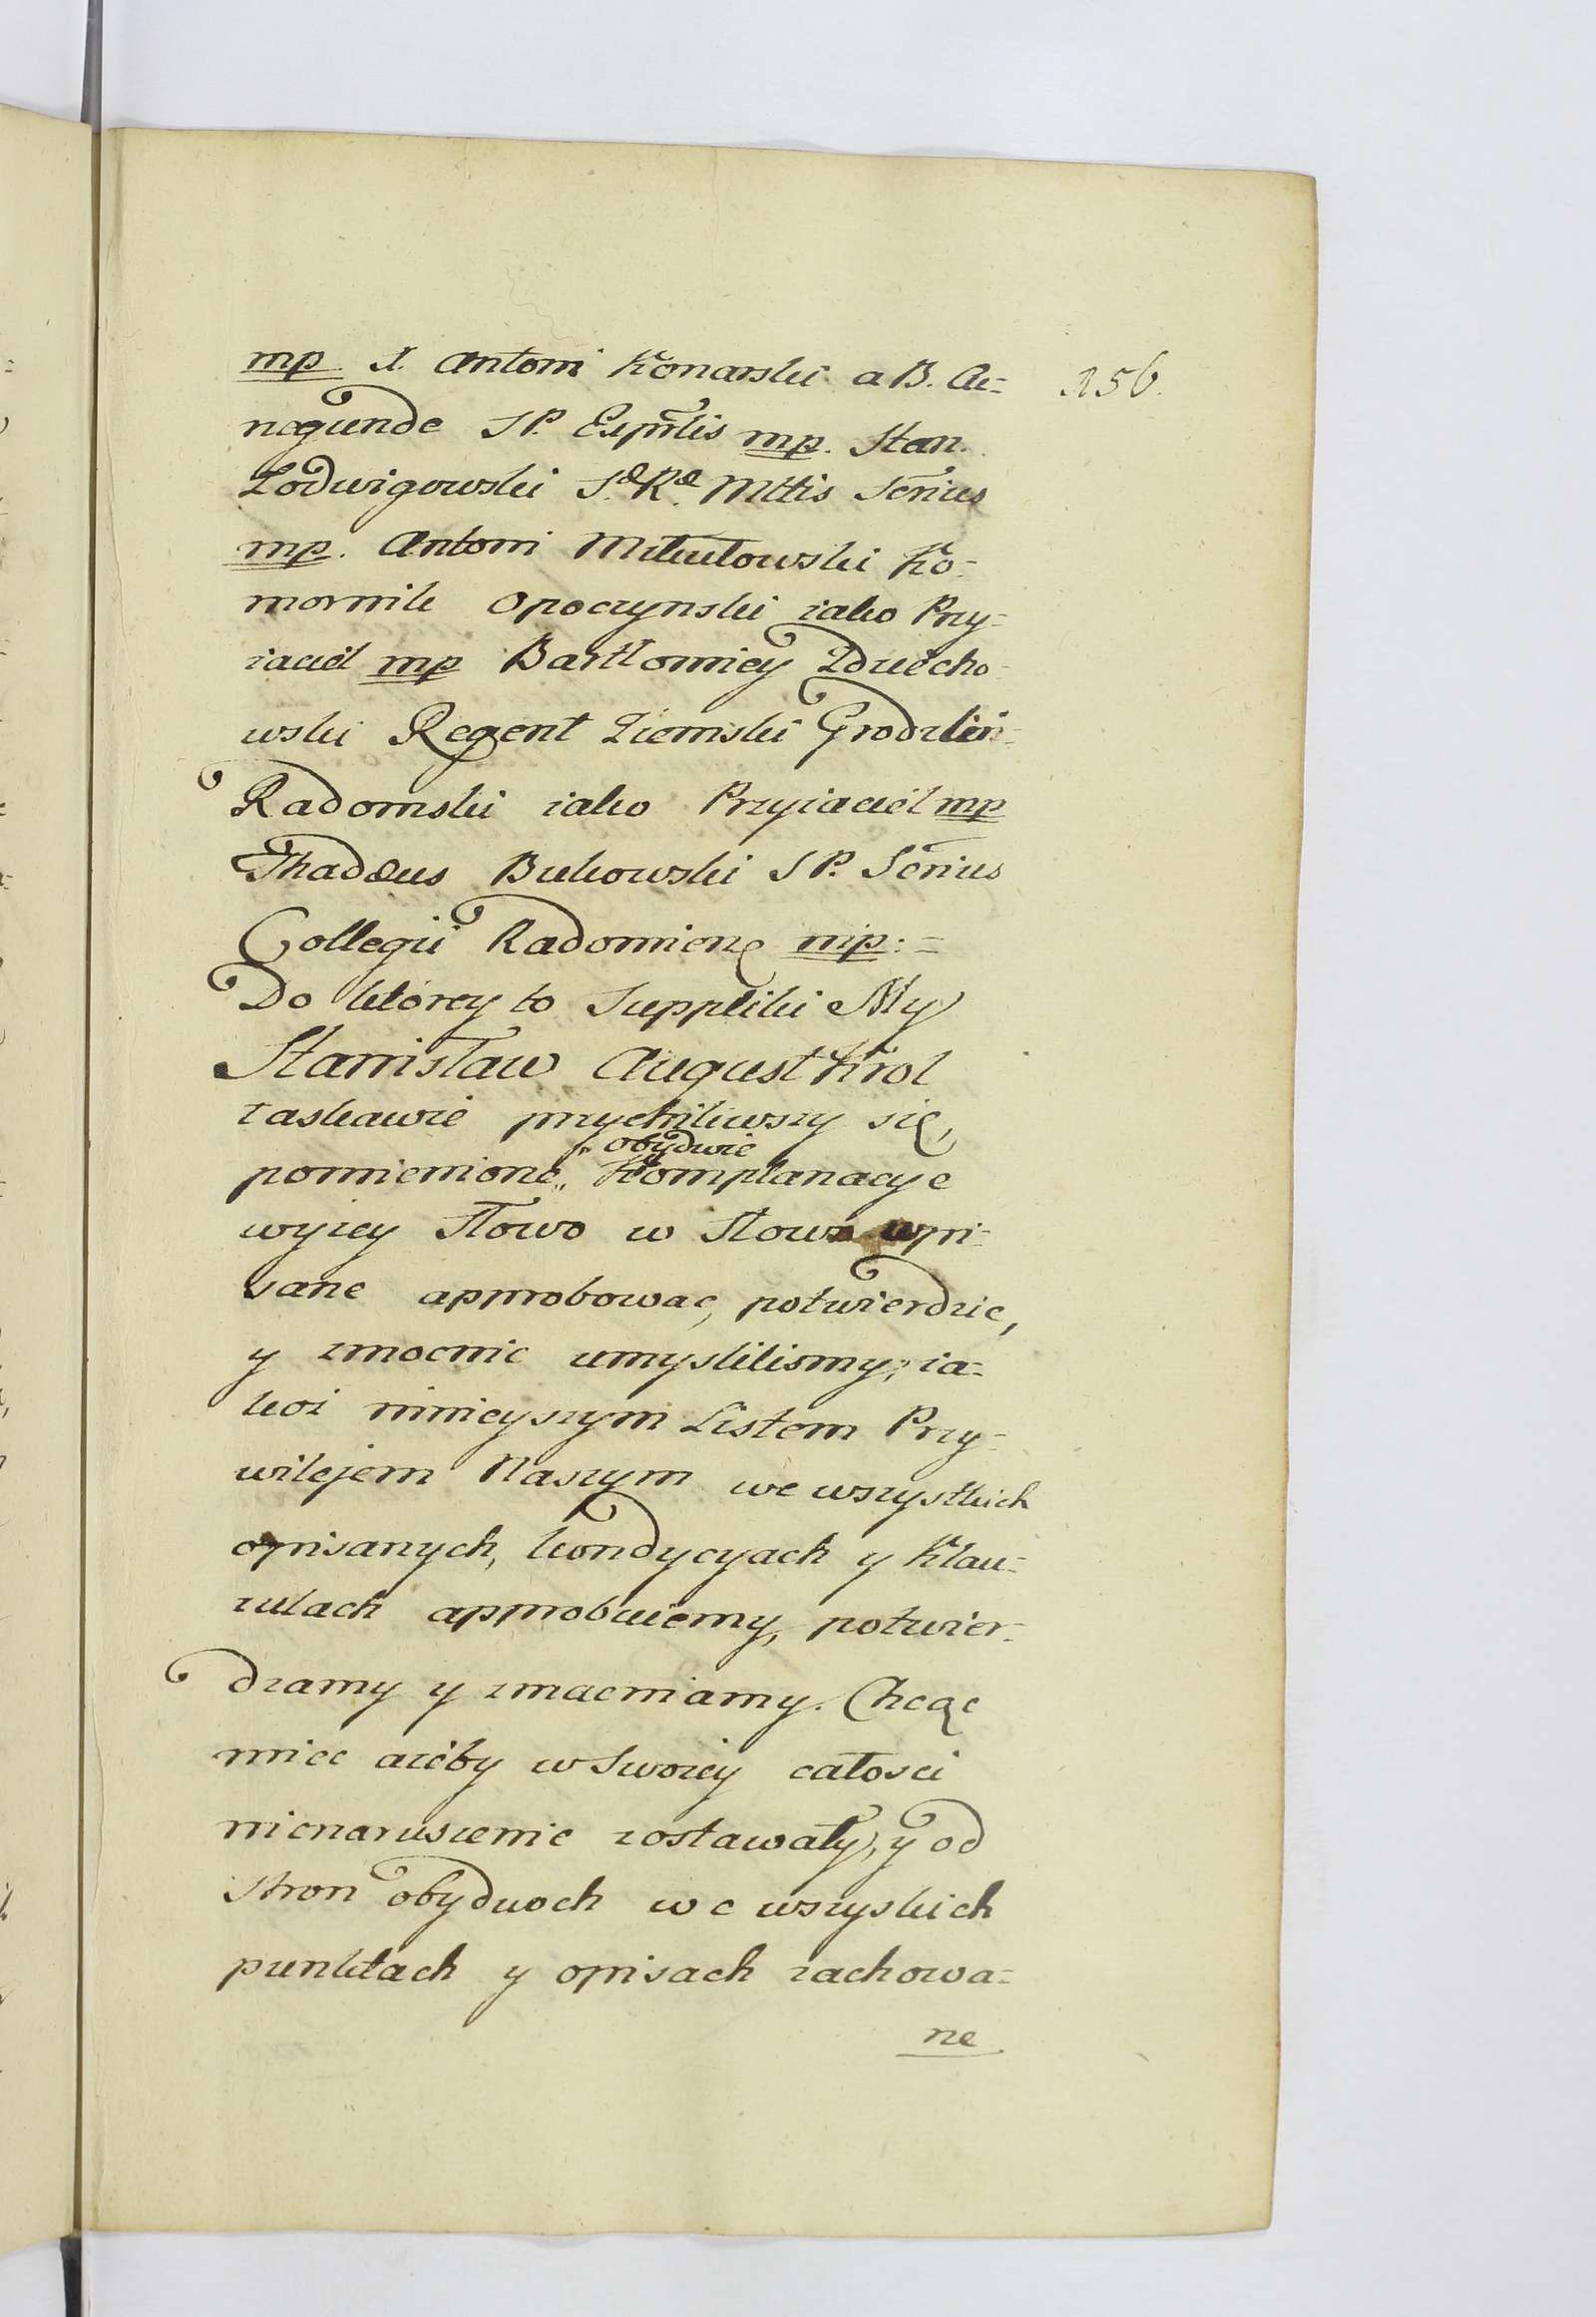 mp X. Antoni Konarski a B. Cu=
negunde S P. Exprlis mp. Stan.
Lodwigowski S. R. Mttis Serius
mp. Antoni Mikułowski Ko=
mornik Opoczynski iako Przy=
iaciel mp Bartłomiey Zdziecho
wski Regent Ziemski Grodzkii
Radomski iako Przyiaciel mp
Thaddeus Bukowski S P. Serius
Collegii Radomien mp:=
Do ktorey to Suppliki My
Stanisław August Krol
łaskawie przychiliwszy się,
obydwie
pomienione Komplanacye
wyzey słowo w słowo wpi=
sane approbowac, potwierdzic,
y zmocnic umyslilismy; ia=
koz ninieyszym Listem Przy=
wilejem Naszym we wszystkich
opisanych, kondycyach y Klau=
zulach approbuiemy, potwier=
dzamy y zmacniamy. Chcąc
miec azeby w swoiey całosci
nienaruszenie zostawały, y od
stron obydwoch we wszyskich
punktach y opisach zachowa=
ne
156.